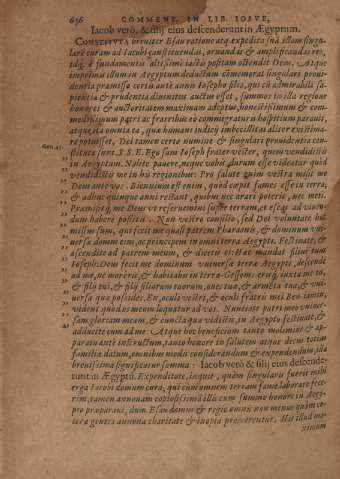 636 COMMENT. IN LIB. IOSVE,
Iacob verò, & filij eius descenderunt in Ægyptum.
CONSTITVTA breuiter Esau ratione atq; expedito suâ istam singu-
larē curam ad Iacobi constituendas, ornandas & amplificandas res,
idq; è fundamentis altissimè iactis positam ostendit Deus. Atque
inprimis illum in Ægyptum deductum cōmemorat singulari proui-
dentia præmissa certis antè annis Iosepho filio, qui cū admirabili sa-
pientia & prudentia diuinitùs auctus esset, summos in illa regione
honores & auctoritatem maximam adeptus, honestissimum & com-
modissimum patri ac fratribus eò commigraturis hospitium parauit,
atque ita omnia ea, quæ humani iudicij imbecillitas aliter existima-
re potuisset, Dei tamen certo numine & singulari prouidentia con-
stituta sunt. Ego sum Ioseph frater vester, quem vendidistis
in Ægyptum. Nolite pauere, neque vobis durum esse videatur quòd
vendidistis me in his regionibus: Pro salute enim vestra misit me
Deus ante vos. Biennium est enim, quod cœpit fames esse in terra;
& adhuc quinque anni restant, quibus nec arari poterit, nec meti.
Præmisitq; me Deus vt reseruemini super terram, et escas ad viuen-
dum habere possitis. Non vestro consilio, sed Dei voluntate huc
missus sum, qui fecit me quasi patrem Pharaonis, & dominum vni-
uersæ domus eius, ac principem in omni terra Ægypti. Festinate, &
ascendite ad patrem meum, & dicetis ei: Hæc mandat filius tuus
Ioseph: Deus fecit me dominum vniuersæ terræ Ægypti, descende
ad me, ne moreris, & habitabis in terra Gessen: erisq; iuxta me tu,
& filij tui, & filij filiorum tuorum, oues tuæ, & armēta tua, & vni-
uersa quæ possides. En, oculi vestri, & oculi fratris mei Ben iamin,
vident quòd os meum loquatur ad vos. Nunciate patri meo vniuer-
sam gloriam meam, & cuncta quæ vidistis in Ægypto: festinate, &
adducite eum ad me. Atque hoc beneficium tanto molimine & ap-
paratu ante instructum, tanto honore in salutem atque decus totius
familiæ datum, omnibus modis considerandum & expendendum, illa
breuissima significatur summa: Iacob verò & filij eius descende-
runt in Ægyptū. Expendite, inquit, quàm singularis fuerit mihi
erga Iacobi domum cura; qui cùm omnem terram fame laborare fece-
rim, tamen annonam copiosissimā illi cum summo honore in Ægy-
pto præparaui, dum Esau domus & regio omnis non minùs quàm ce-
teræ gentes annonæ charitate & inopia premerentur. His illud ma-
ximum